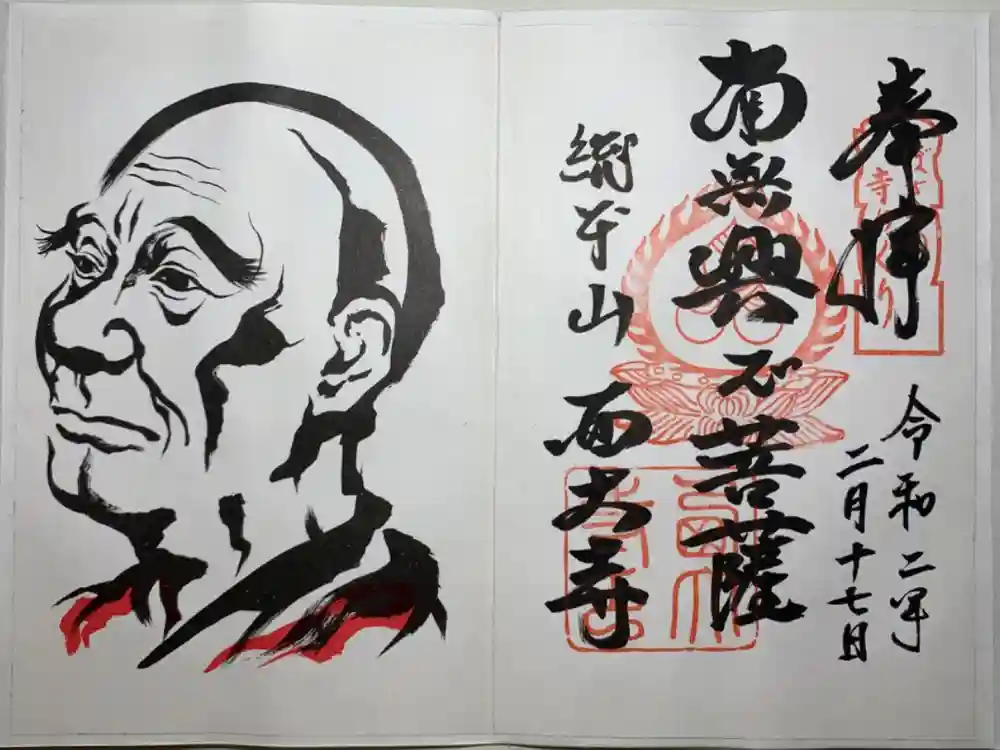 奉拝
令和二年
二月十七日
南無興正菩薩
総本山 西大寺